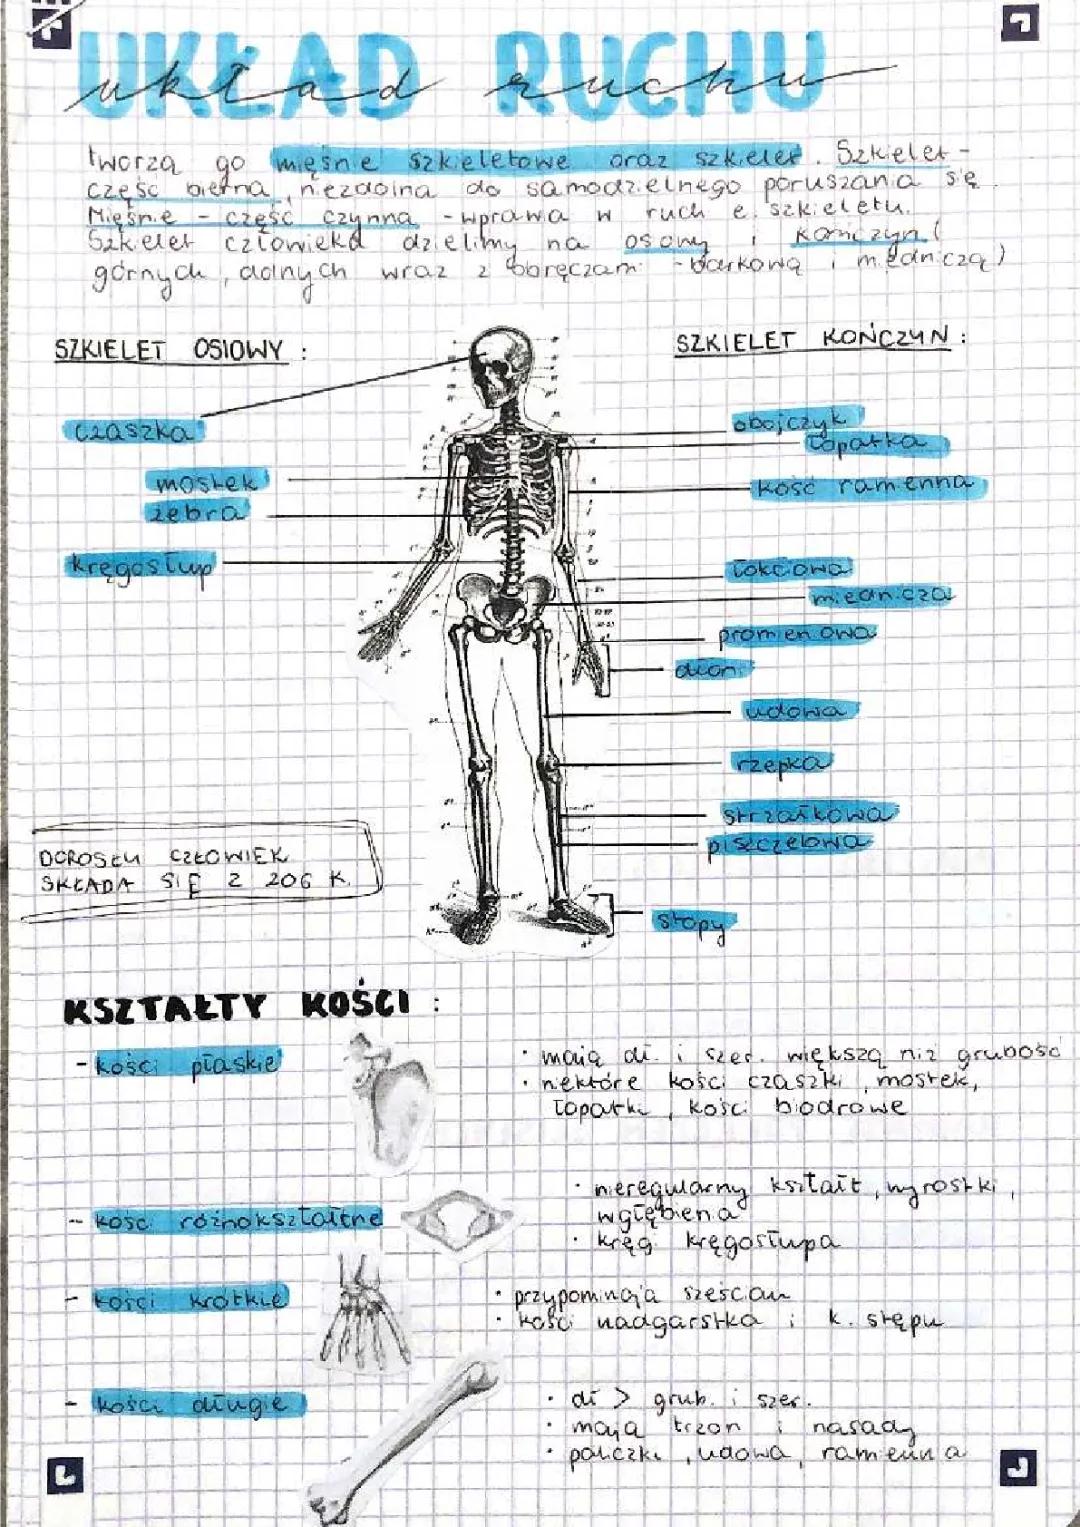 UKŁAD RUCHU
układ ruchu
tworzą go mięśnie szkieletowe oraz szkielet. Szkielet -
część bierna, niezdolna do samodzielnego poruszania się.
Mięśnie - część czynna - wprawia w ruch el. szkieletu.
Szkielet człowieka dzielimy na osiowy i kończyn (
górnych, dolnych wraz z obręczami - barkową i miedniczą)
SZKIELET OSIOWY :
SZKIELET KOŃCZYN :
czaszka
obojczyk
łopatka
mostek
kość ramienna
żebra
kręgosłup
łokciowa
miednicza
promieniowa
dłoni
udowa
rzepka
strzałkowa
piszczelowa
DOROSŁY CZŁOWIEK
SKŁADA SIĘ Z 206 K.
stopy
KSZTAŁTY KOŚCI :
- kości płaskie
• mają dł. i szer. większą niż grubość
• niektóre kości czaszki, mostek,
łopatki, kości biodrowe
- kości różnokształtne
• nieregularny kształt, wyrostki,
wgłębienia
• kręgi kręgosłupa
- kości krótkie
• przypominają sześcian
• kości nadgarstka i k. stępu
- kości długie
• dł > grub. i szer.
• mają trzon i nasady
• paliczki, udowa, ramienna